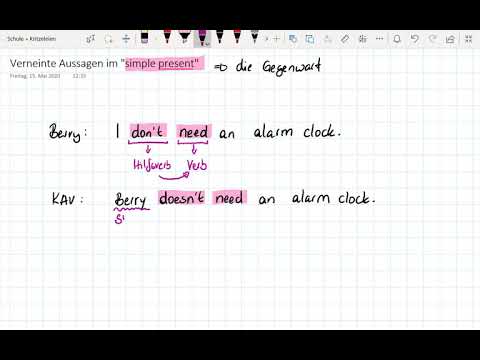 Schule » Kritzeleien
Verneinte Aussagen im "simple present" ⇒ die Gegenwart
Freitag, 15. Mai 2020 12:35
Berry: I don't need an alarm clock.
Hilfsverb Verb
KAV: Berry doesn't need an alarm clock.